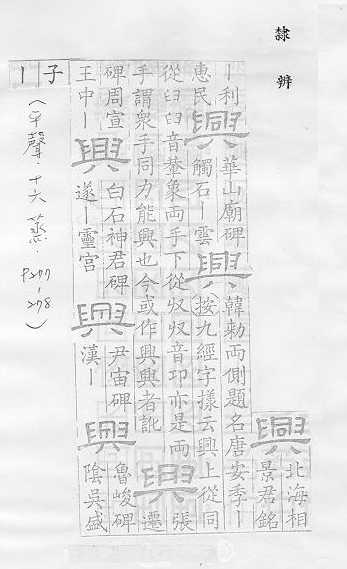 隸辨
興 北海相
景君銘
丨利
惠民
興 華山廟碑
觸石丨雲
興 韓勑兩側題名唐安季丨
按九經字樣云興上從同
從臼臼音轝象兩手下從収収音邛亦是兩
手謂衆手同力能興也今或作興興者訛
興 張
遷
碑周宣
王中丨
興 白石神君碑
遂丨靈宮
興 尹宙碑
漢丨
興 魯峻碑
陰吳盛
子
丨
(平聲．十六蒸．P277-278)